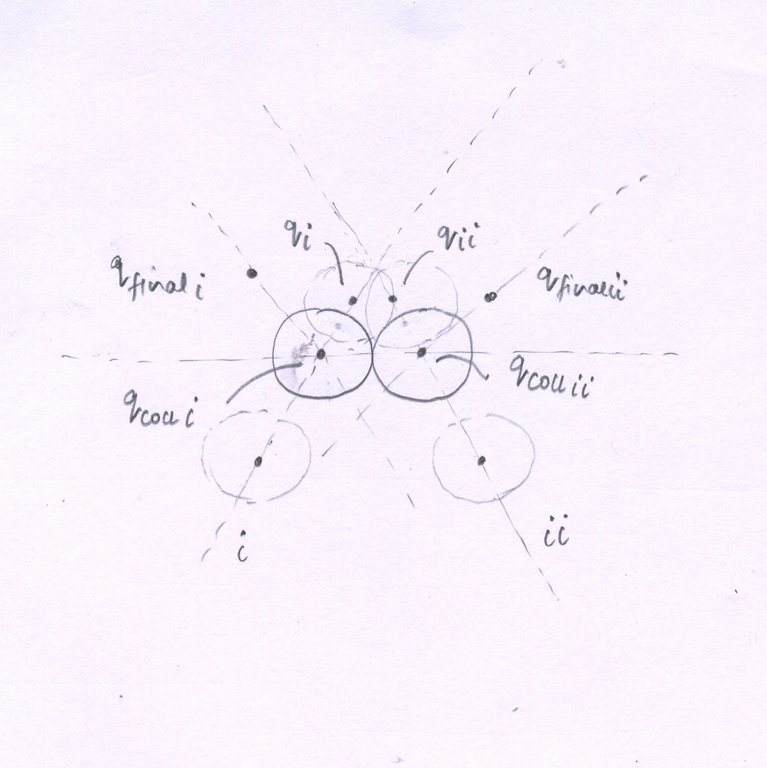 qi
qii
qfinal i
qfinal ii
qcoll i
qcoll ii
i
ii